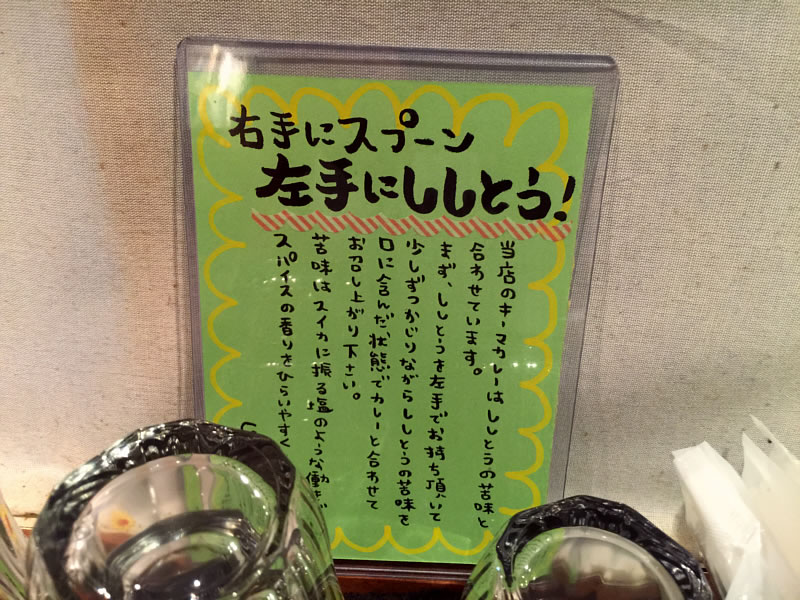 右手にスプーン
左手にししとう!
当店のキーマカレーはししとうの苦味と
合わせています。
まず、ししとうを左手でお持ち頂いて
少しずつかじりながらししとうの苦味を
口に含んだ状態でカレーと合わせて
お召し上がり下さい。
苦味はスイカに振る塩のような働き
スパイスの香りをひらいやすく